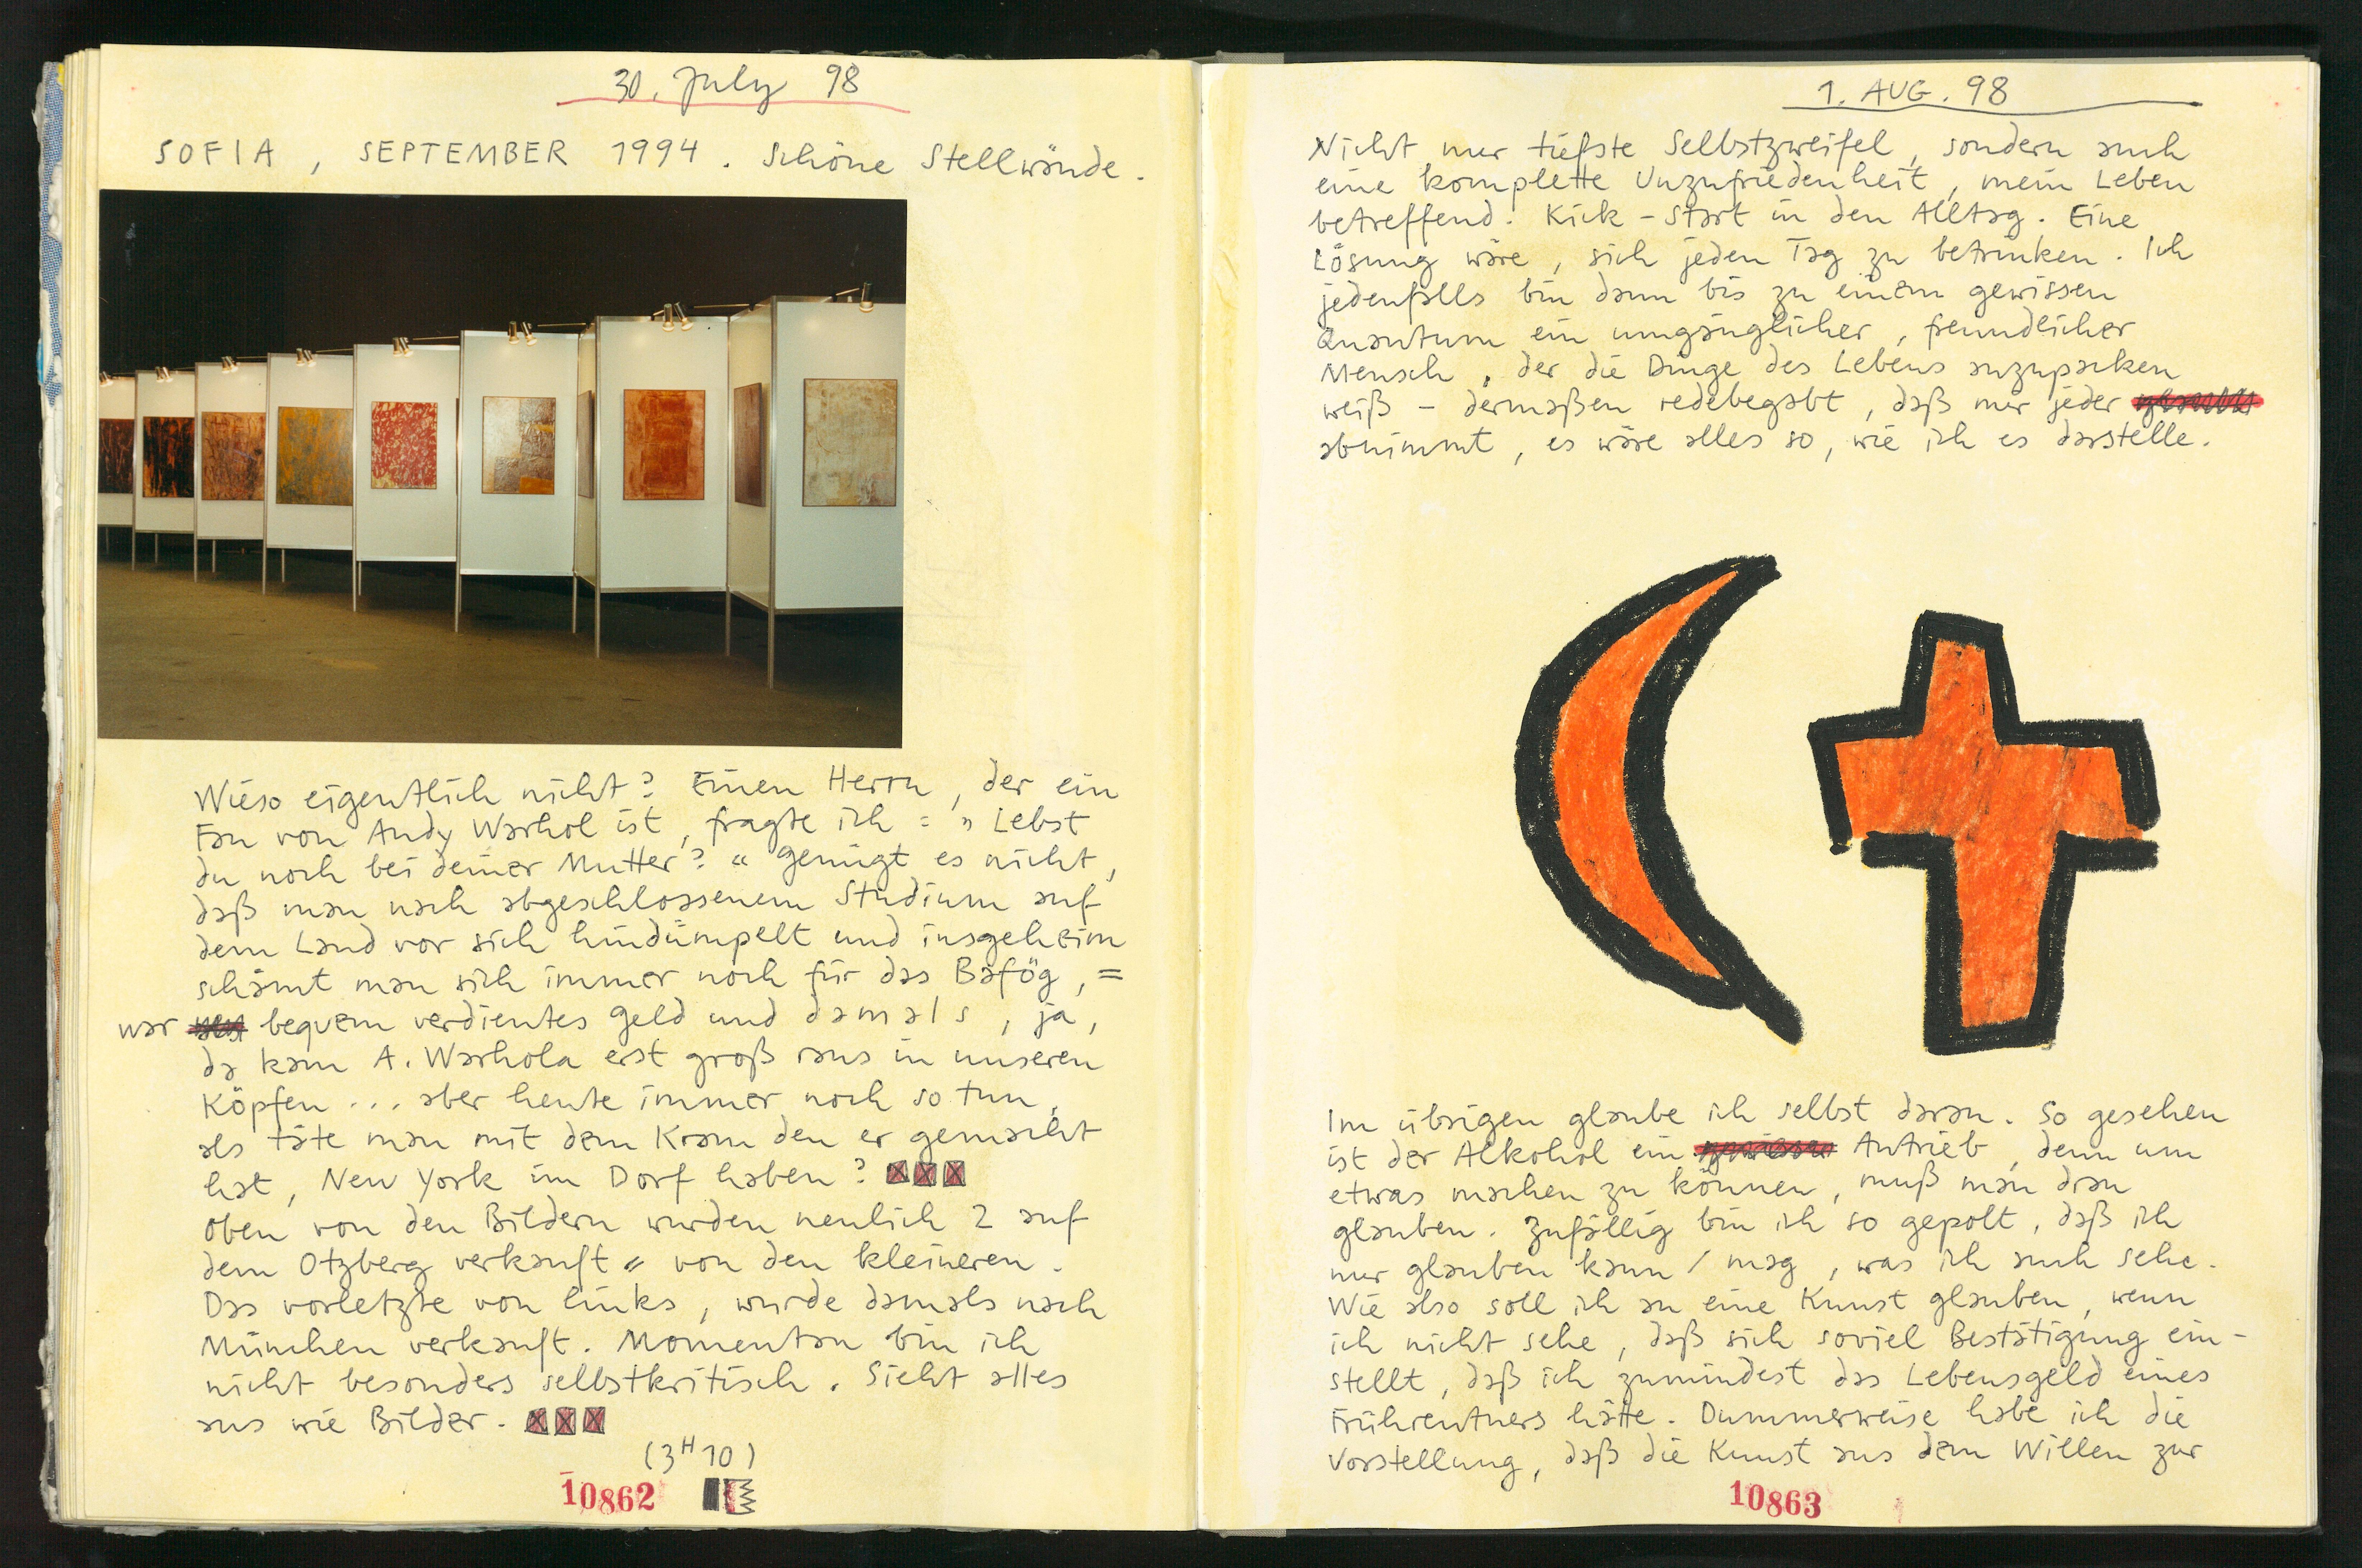 30. July 98
SOFIA, SEPTEMBER 1994. Schöne Stellwände.
Wieso eigentlich nicht? Einen Herrn, der ein
Fan von Andy Warhol ist, fragte ich: „Lebst
du noch bei deiner Mutter?“ Genügt es nicht,
daß man nach abgeschlossenem Studium auf
dem Land vor sich hindümpelt und insgeheim
schämt man sich immer noch für das Bafög, =
war bequem verdientes Geld und damals, ja,
da kam A. Warhola erst groß raus in unseren
Köpfen ... aber heute immer noch so tun,
als täte man mit dem Kram den er gemacht
hat, New York im Dorf haben?
Oben von den Bildern wurden neulich 2 auf
dem Otzberg verkauft = von den kleineren.
Das vorletzte von links, wurde damals nach
München verkauft. Momentan bin ich
nicht besonders selbstkritisch. Sieht alles
aus wie Bilder.
(3H10)
10862
1. AUG. 98
Nicht nur tiefste Selbstzweifel, sondern auch
eine komplette Unzufriedenheit, mein Leben
betreffend. Kick-Start in den Alltag. Eine
Lösung wäre, sich jeden Tag zu betrinken. Ich
jedenfalls bin dann bis zu einem gewissen
Quantum ein umgänglicher, freundlicher
Mensch, der die Dinge des Lebens anzupacken
weiß - dermaßen redebegabt, daß mir jeder
abnimmt, es wäre alles so, wie ich es darstelle.
Im übrigen glaube ich selbst daran. So gesehen
ist der Alkohol ein Antrieb, denn um
etwas machen zu können, muß man dran
glauben. Zufällig bin ich so gepolt, daß ich
nur glauben kann / mag, was ich auch sehe.
Wie also soll ich an eine Kunst glauben, wenn
ich nicht sehe, daß sich soviel Bestätigung ein-
stellt, daß ich zumindest das Lebensgeld eines
Frührentners hätte. Dummerweise habe ich die
Vorstellung, daß die Kunst aus dem Willen zur
10863